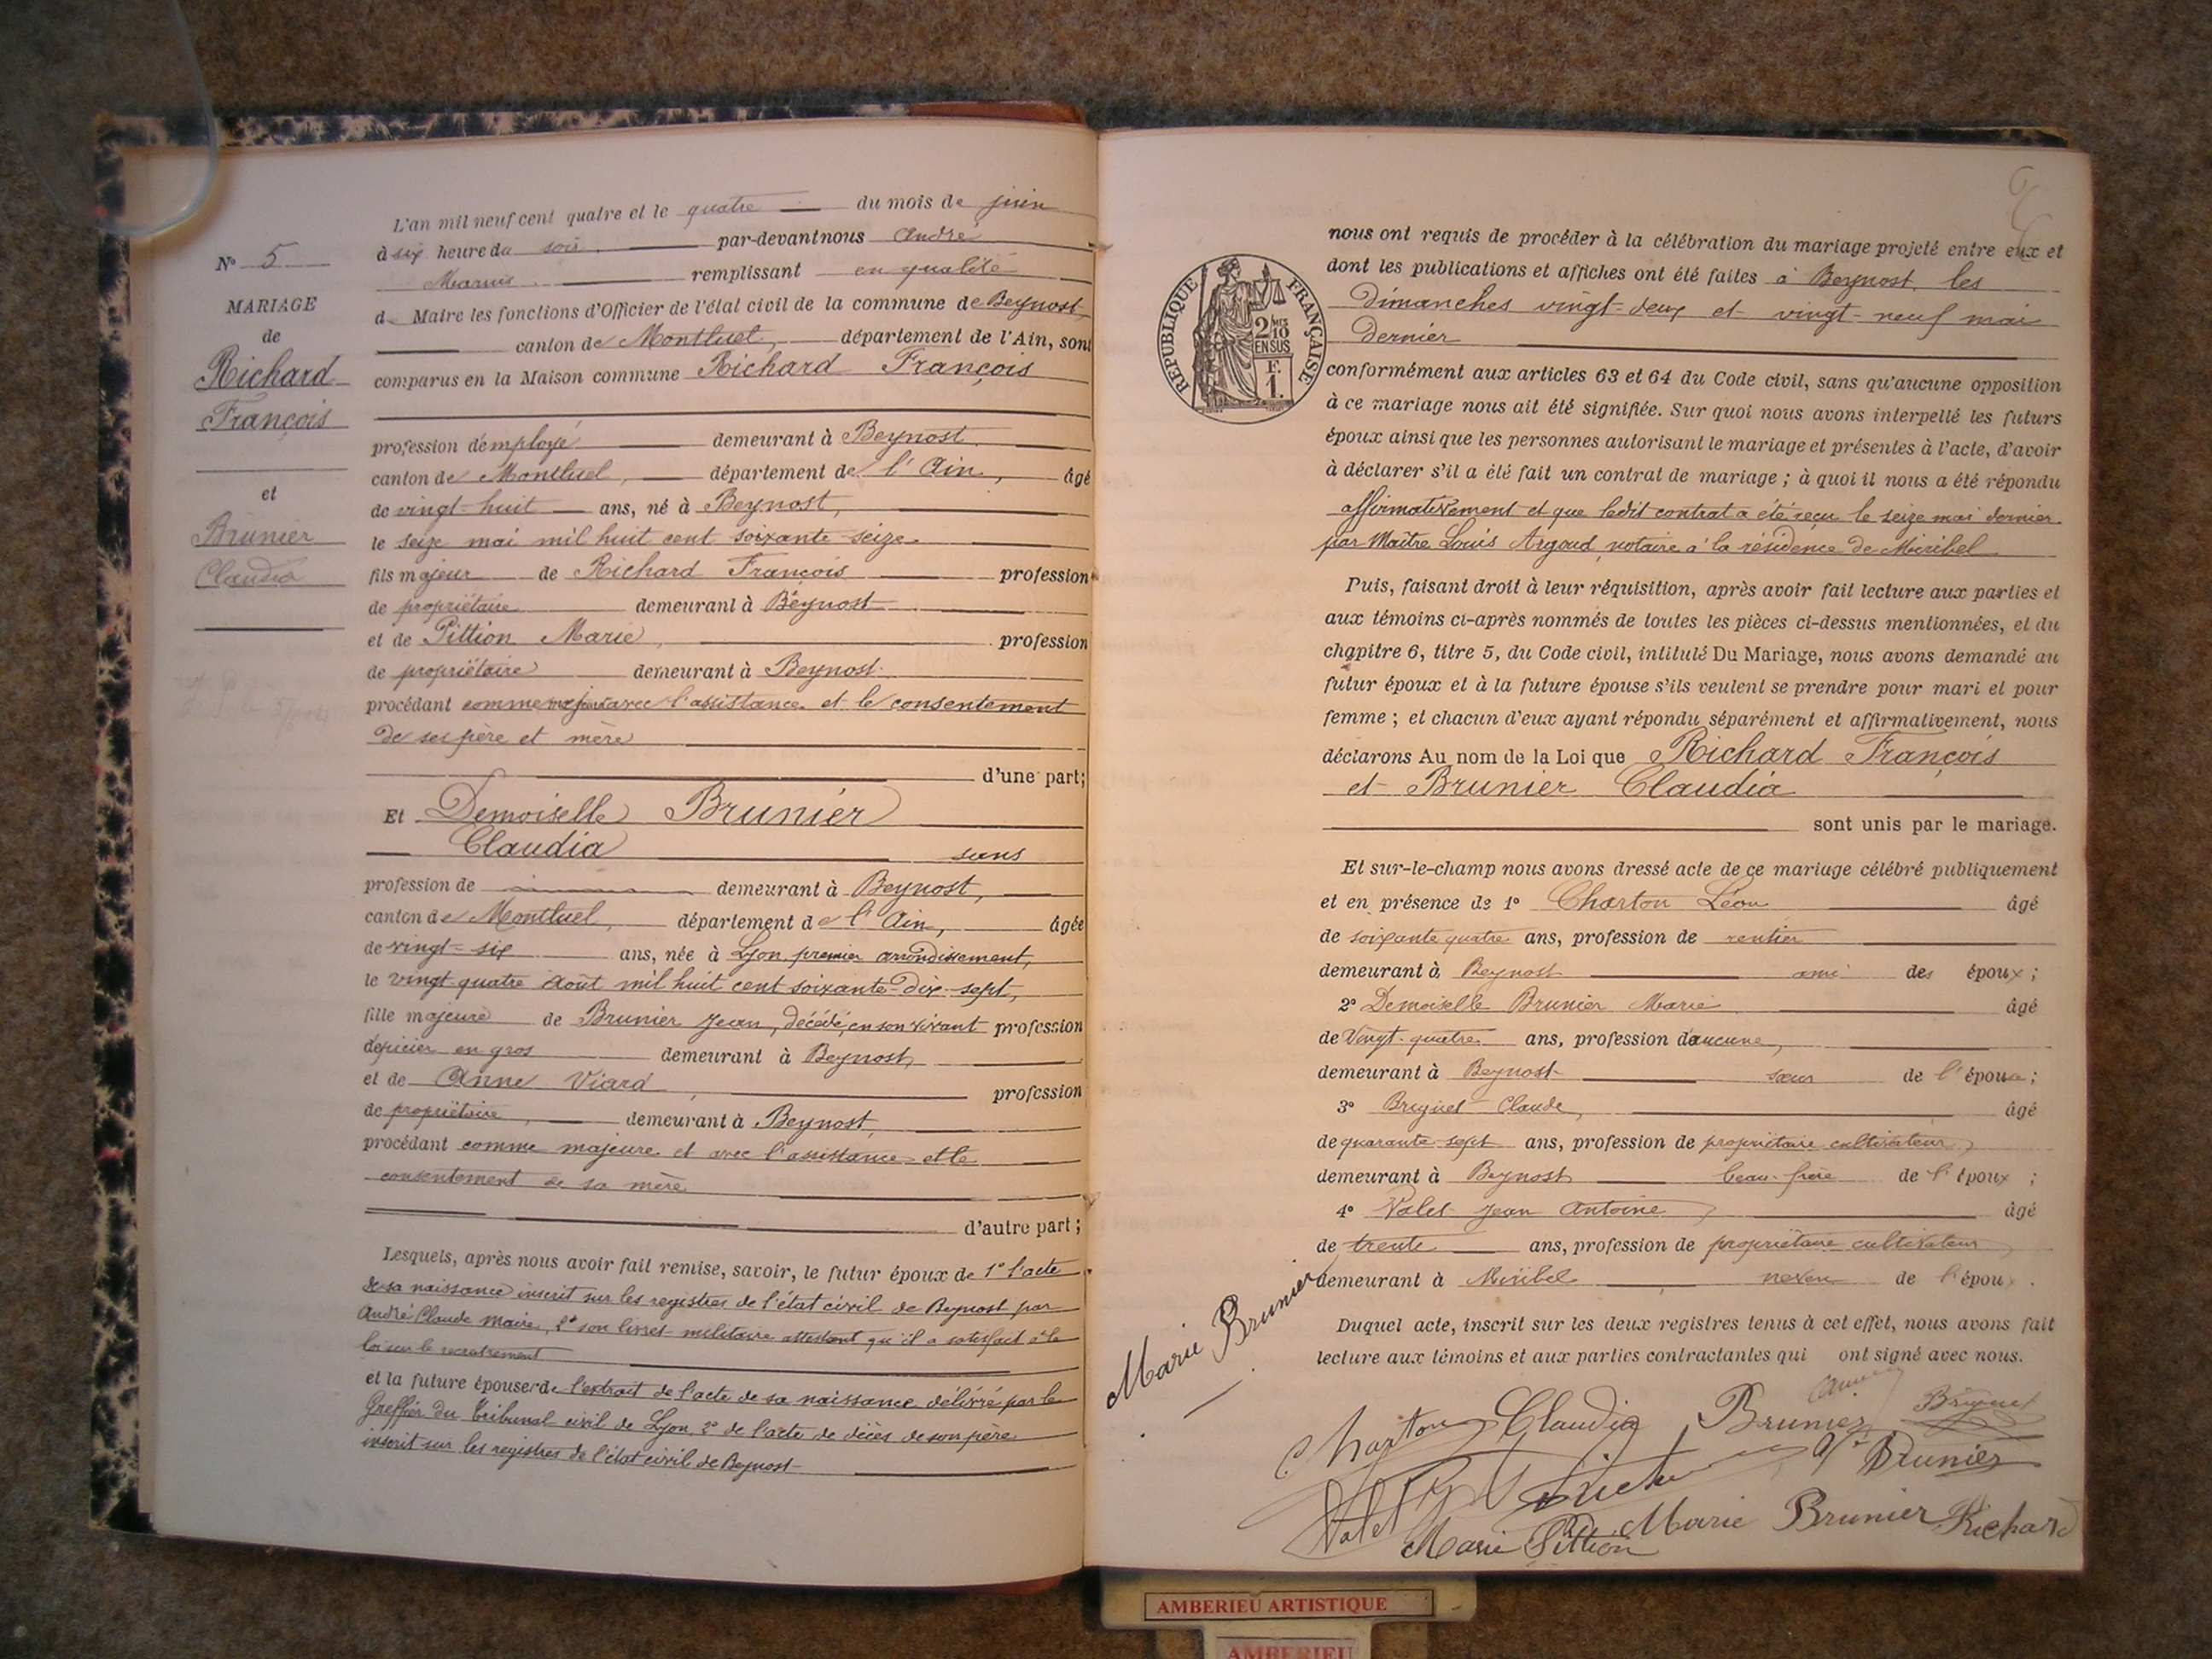 L'an mil neuf cent quatre et le quatre du mois de juin
à six heure du soir par-devant nous André
Marius remplissant en qualité
de Maire les fonctions d'Officier de l'état civil de la commune de Beynost
canton de Montluel, département de l'Ain, sont
comparus en la Maison commune Richard François
profession d'employé demeurant à Beynost
canton de Montluel, département de l'Ain, âgé
de vingt-huit ans, né à Beynost,
le seize mai mil huit cent soixante-seize
fils majeur de Richard François profession
de propriétaire demeurant à Beynost
et de Pittion Marie, profession
de propriétaire demeurant à Beynost
procédant comme majeur avec l'assistance et le consentement
de ses père et mère
d'une part;
N° 5
MARIAGE
de
Richard
François
et
Brunier
Claudia
Et Demoiselle Brunier
Claudia sans
profession de demeurant à Beynost,
canton de Montluel, département de l'Ain, âgée
de vingt-six ans, née à Lyon premier arrondissement,
le vingt quatre Août mil huit cent soixante-dix-sept,
fille majeure de Brunier Jean, décédé, en son vivant profession
d'épicier en gros demeurant à Beynost,
et de Anne Viard, profession
de propriétaire, demeurant à Beynost,
procédant comme majeure et avec l'assistance et le
consentement de sa mère
d'autre part;
Lesquels, après nous avoir fait remise, savoir, le futur époux de 1° l'acte
de sa naissance inscrit sur les registres de l'état civil de Beynost par
André Claude maire, 2° son livret militaire attestant qu'il a satisfait à la
loi sur le recrutement
et la future épouse de l'extrait de l'acte de sa naissance délivré par le
Greffier du Tribunal civil de Lyon, 2° de l'acte de décès de son père
inscrit sur les registres de l'état civil de Beynost
RÉPUBLIQUE FRANÇAISE
2/10
EN SUS
F.
1.
nous ont requis de procéder à la célébration du mariage projeté entre eux et
dont les publications et affiches ont été faites à Beynost, les
dimanches vingt-deux et vingt-neuf mai
dernier
conformément aux articles 63 et 64 du Code civil, sans qu'aucune opposition
à ce mariage nous ait été signifiée. Sur quoi nous avons interpellé les futurs
époux ainsi que les personnes autorisant le mariage et présentes à l'acte, d'avoir
à déclarer s'il a été fait un contrat de mariage; à quoi il nous a été répondu
affirmativement et que ledit contrat a été reçu le seize mai dernier
par Maître Louis Argoud, notaire à la résidence de Miribel
Puis, faisant droit à leur réquisition, après avoir fait lecture aux parties et
aux témoins ci-après nommés de toutes les pièces ci-dessus mentionnées, et du
chapitre 6, titre 5, du Code civil, intitulé Du Mariage, nous avons demandé au
futur époux et à la future épouse s'ils veulent se prendre pour mari et pour
femme; et chacun d'eux ayant répondu séparément et affirmativement, nous
déclarons Au nom de la Loi que Richard François
et Brunier Claudia
sont unis par le mariage.
Et sur-le-champ nous avons dressé acte de ce mariage célébré publiquement
et en présence de 1° Charton Léon âgé
de soixante quatre ans, profession de rentier
demeurant à Beynost ami des époux;
2° Demoiselle Brunier Marie âgé
de Vingt-quatre ans, profession d'aucune,
demeurant à Beynost sœur de l'épouse;
3° Bruguet Claude, âgé
de quarante-sept ans, profession de propriétaire cultivateur,
demeurant à Beynost beau-frère de l'époux;
4° Valet Jean Antoine, âgé
de trente ans, profession de propriétaire cultivateur,
demeurant à Miribel, neveu de l'époux.
Duquel acte, inscrit sur les deux registres tenus à cet effet, nous avons fait
lecture aux témoins et aux parties contractantes qui ont signé avec nous.
Marie Brunier
Charton Claudia Brunier
Brunier
Valet
Marie Pittion Marie Brunier Richard
AMBERIEU ARTISTIQUE
AMBERIEU